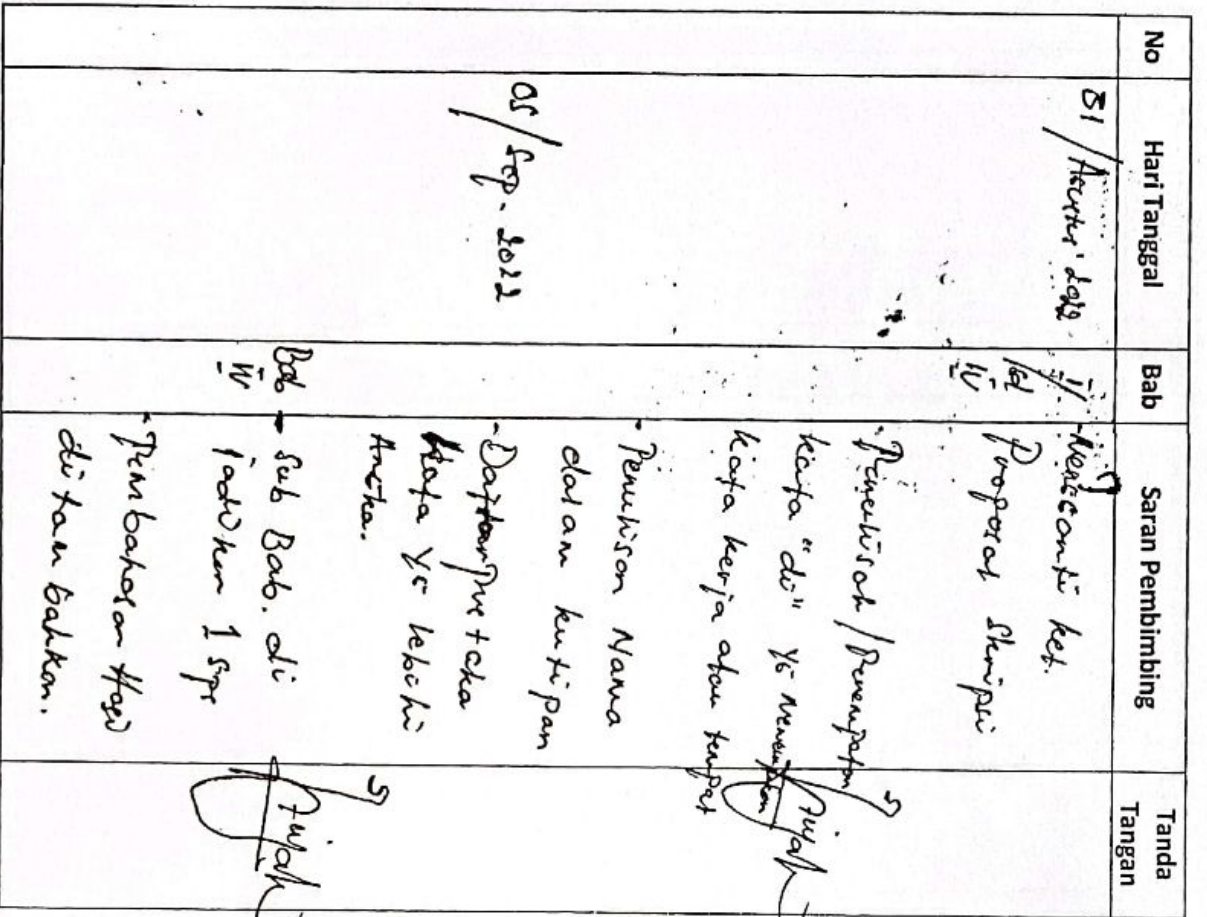 No Hari Tanggal Bab Saran Pembimbing Tanda Tangan
31/Agustus 2022
- Mengganti ket.
Proposal Skripsi
- Penulisan/Penempatan
kata "di" yg
kata kerja atau tempat
- Penulisan Nama
dalam kutipan
05/Sep. 2022
- Daftar Pustaka
kata yg
Bab IV
- Sub Bab. di
jadikan 1
- Pembahasan Hasil
di tambahkan.